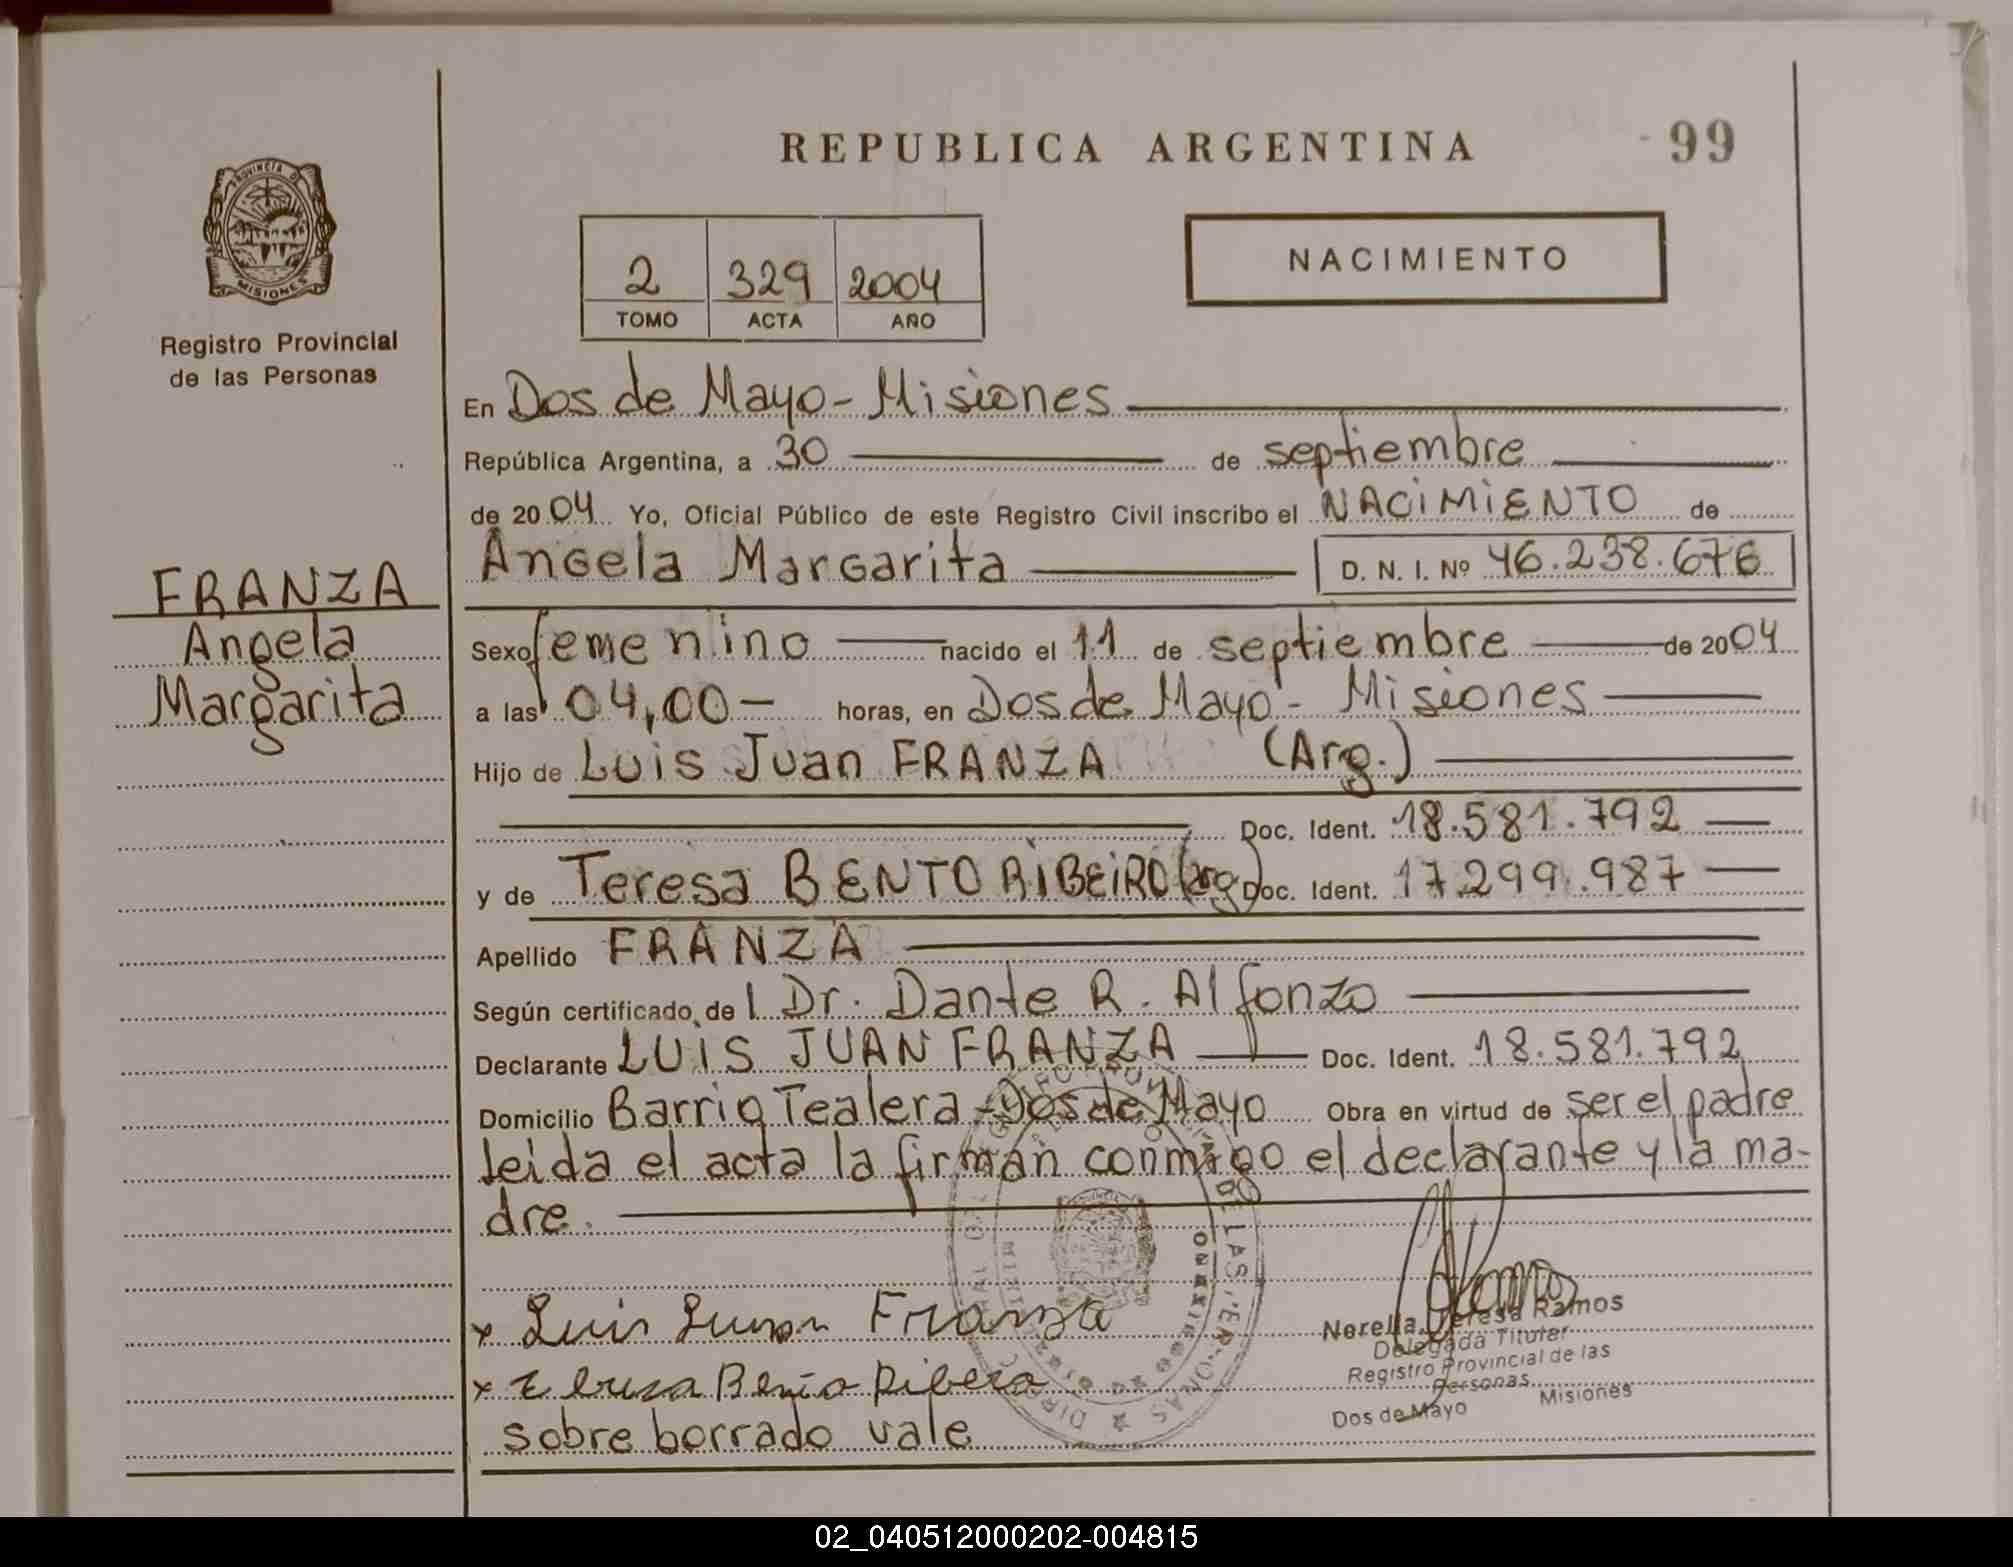 REPUBLICA ARGENTINA
99
PROVINCIA DE
MISIONES
Registro Provincial
de las Personas
2 329 2004
TOMO ACTA AÑO
NACIMIENTO
En Dos de Mayo - Misiones
República Argentina, a 30 de septiembre
de 2004 Yo, Oficial Público de este Registro Civil inscribo el NACIMIENTO de
Angela Margarita D. N. I. Nº 46.238.676
FRANZA
Angela
Margarita
Sexo femenino nacido el 11 de septiembre de 2004
a las 04,00 - horas, en Dos de Mayo - Misiones
Hijo de Luis Juan FRANZA (Arg.)
Doc. Ident. 18.581.792
y de Teresa BENTO RIBEIRO (arg) Doc. Ident. 17.299.987
Apellido FRANZA
Según certificado de l Dr. Dante R. Alfonzo
Declarante LUIS JUAN FRANZA Doc. Ident. 18.581.792
Domicilio Barrio Tealera - Dos de Mayo Obra en virtud de ser el padre
leida el acta la firman conmigo el declarante y la ma-
dre.
x Luis Juan Franza
x Bento Ribero
sobre borrado vale
Norella Teresa Ramos
Delegada Titular
Registro Provincial de las
Personas
Dos de Mayo Misiones
02_040512000202-004815